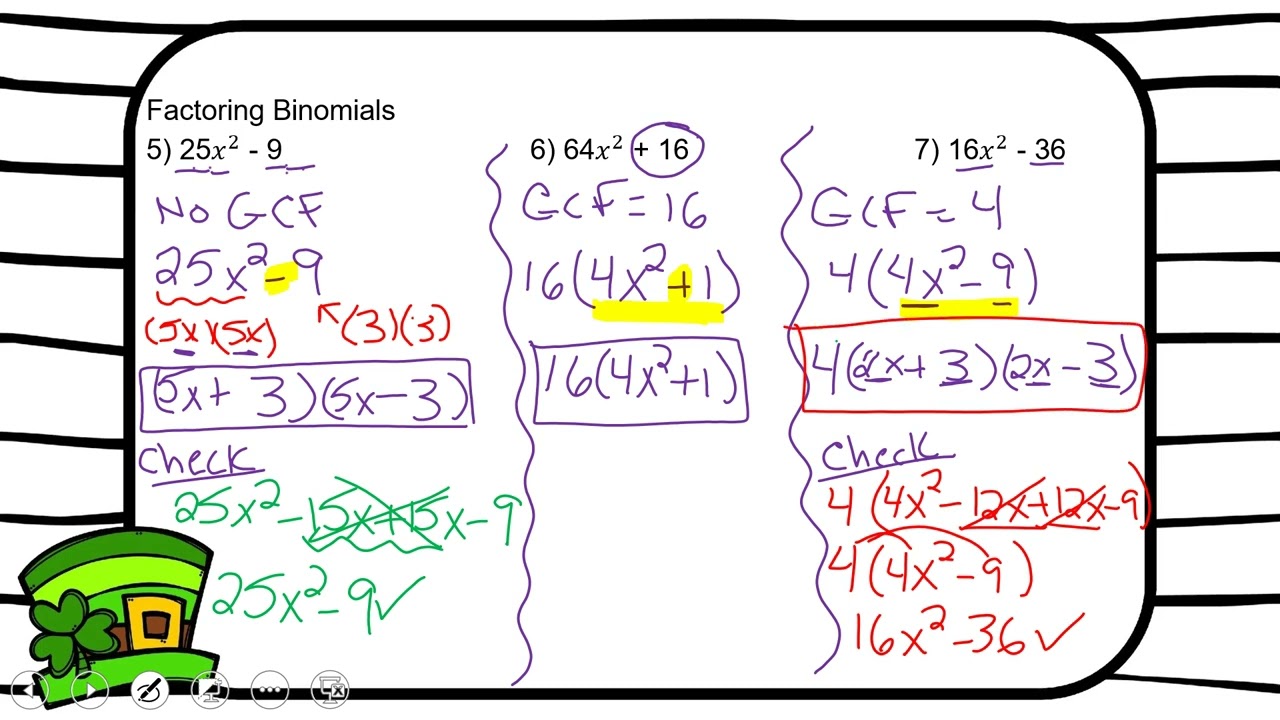 Factoring Binomials
5) 25x² - 9
No GCF
25x² - 9
(5x)(5x) (3)(3)
(5x + 3)(5x - 3)
Check
25x² - 15x + 15x - 9
25x² - 9 ✓
6) 64x² + 16
GCF = 16
16(4x² + 1)
16(4x² + 1)
7) 16x² - 36
GCF = 4
4(4x² - 9)
4(2x + 3)(2x - 3)
Check
4(4x² - 12x + 12x - 9)
4(4x² - 9)
16x² - 36 ✓